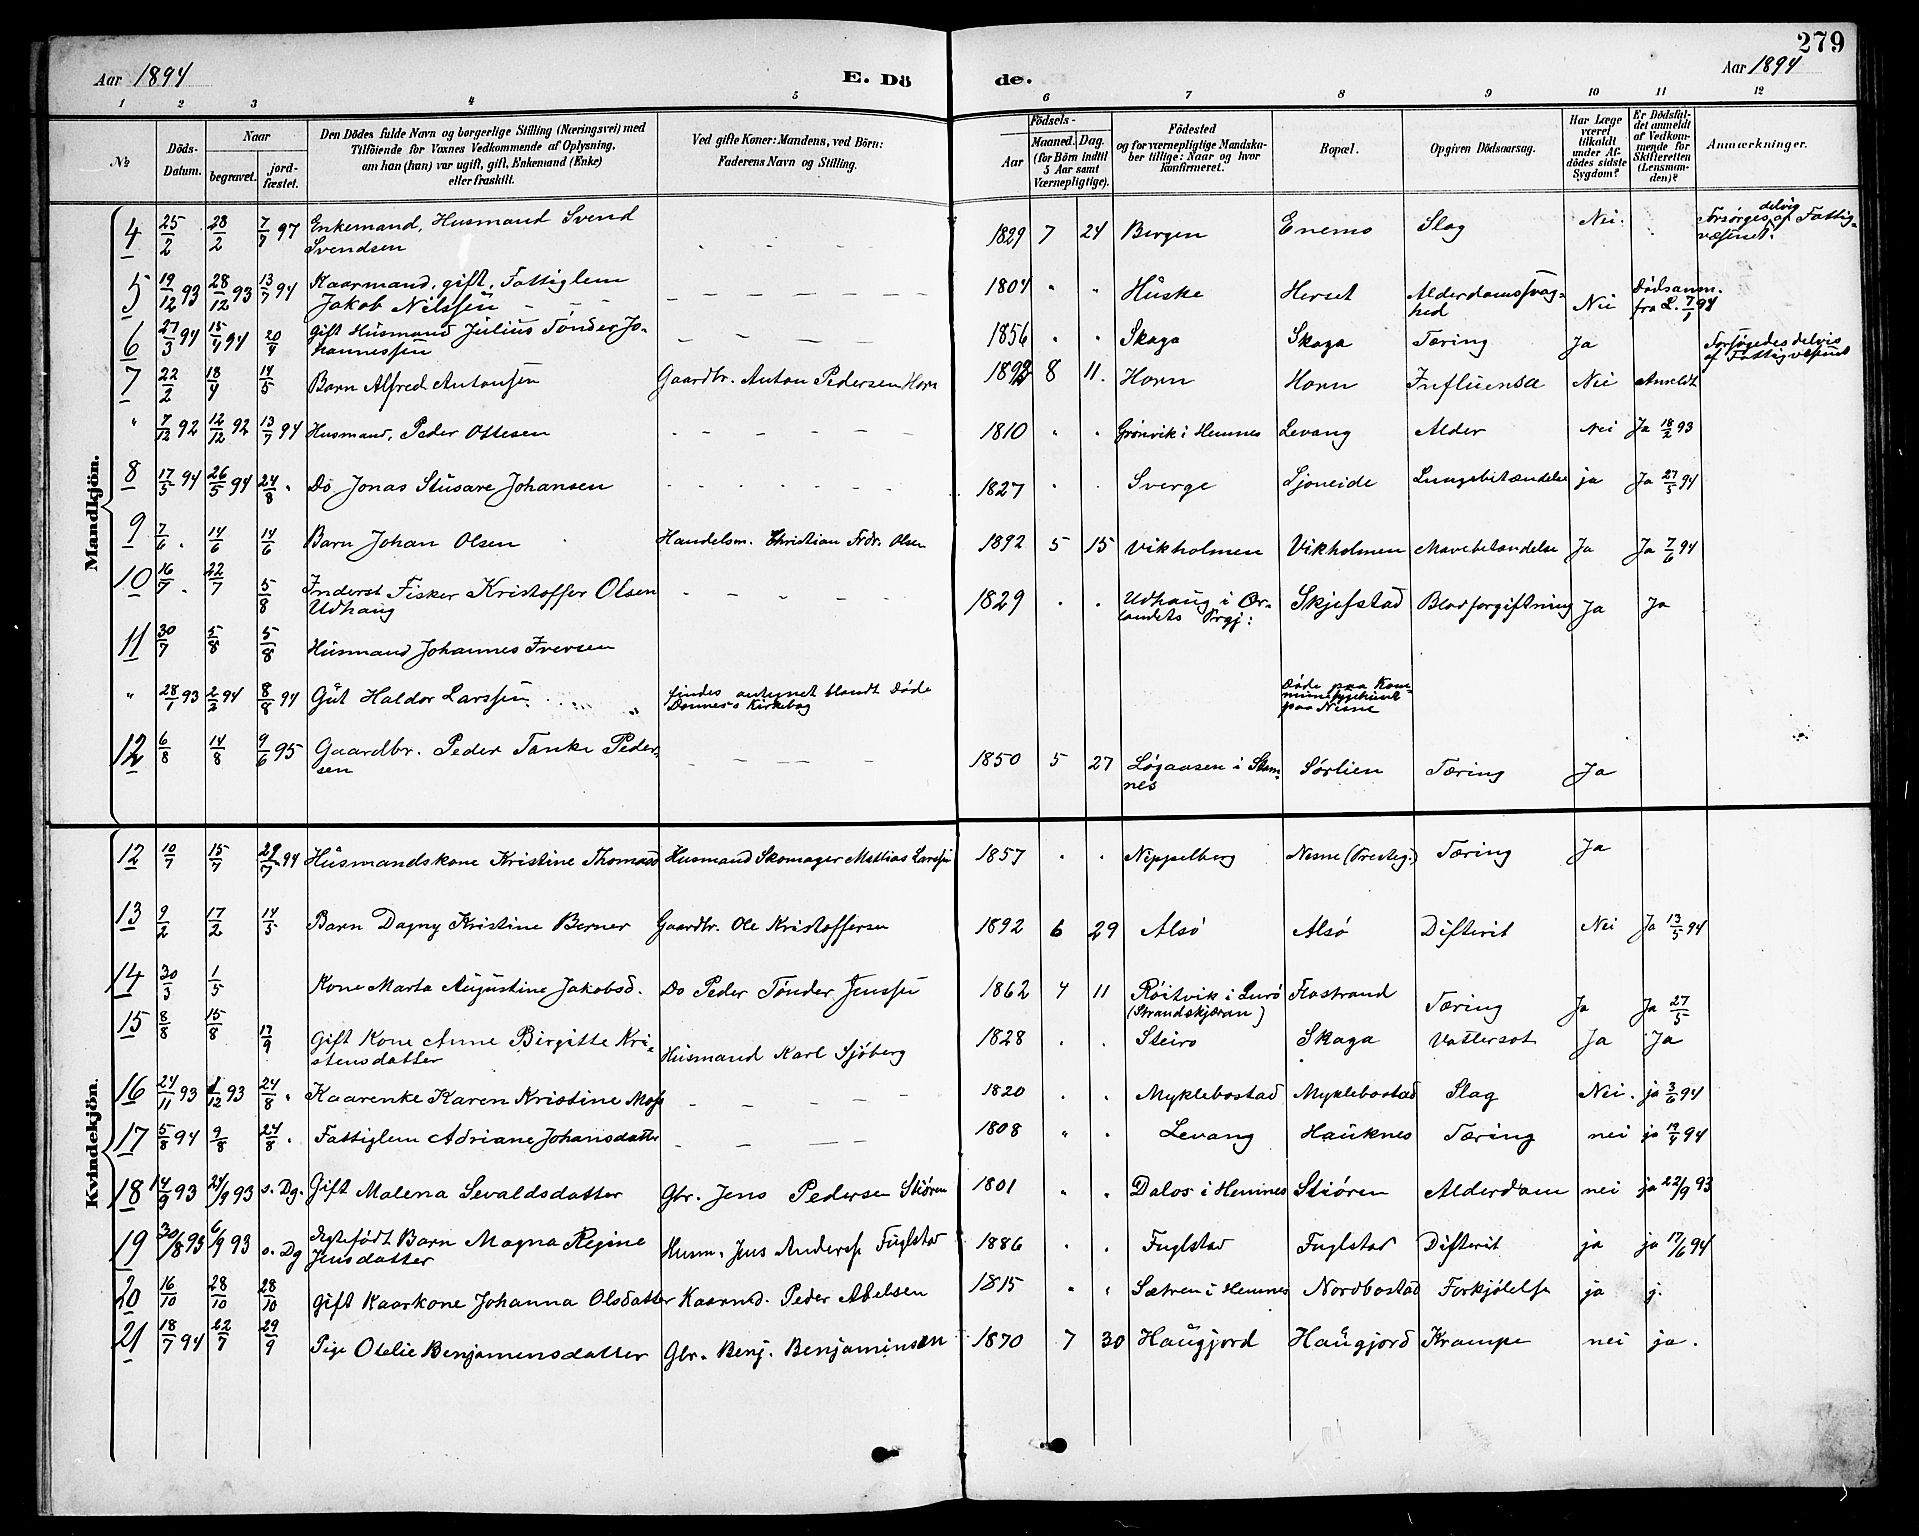 279
Aar 1894 E. Dö de. Aar 1894
1 2 3 4 5 6 7 8 9 10 11 12
№ Döds-Datum. Naar begravet. jordfæstet. Den Dödes fulde Navn og borgerlige Stilling (Næringsvei) med Tilföiende for Voxnes Vedkommende af Oplysning, om han (hun) var ugift, gift, Enkemand (Enke) eller fraskilt. Ved gifte Koner: Mandens, ved Börn: Faderens Navn og Stilling. Födsels- Aar Maaned. Dag. (for Börn indtil 5 Aar samt Værnepligtige). Födested og for værnepligtige Mandskaber tillige: Naar og hvor konfirmeret. Bopæl. Opgiven Dödsaarsag. Har Læge været tilkaldt under Afdödes sidste Sygdom? Er Dödsfaldet anmeldt af Vedkommende for Skifteretten (Lensmanden)? Anmærkninger.
Mandkjön.
4 25/2 28/2 7/7 97 Enkemand, Husmand Svend Svendsen 1829 7 24 Bergen Enemo Slag Nei. Forsørges delvis af Fattigvæsenet.
5 19/12 93 28/12 93 13/7 94 Kaarmand, gift, Fattiglem Jakob Nilssen – – – 1804 " " Húske Herset Alderdomssvaghed Nei Dødsanm. fra L. 7/1 94
6 27/3 94 15/4 94 20/4 Gift Húsmand Julius Tønder Johannessen – – – 1856 " " Skaga Skaga Tæring Ja Forsørgedes delvis af Fattigvæsenet
7 22/2 18/4 14/5 Barn Alfred Antonsen Gaardbr. Anton Pedersen Horn 1892 8 11. Horn Horn Influensa Nei Anmeldt
" 7/12 92 12/12 92 13/7 94 Husmand, Peder Ottesen – – – 1810 " " Grönvik i Hemnes Levang Alder Nei Ja 18/2 93
8 17/5 94 26/5 94 24/8 " Do Jonas Stusare Johansen – – – 1827 " " Sverge Sjoneide Lungebetændelse ja Ja 27/5 94
9 7/6 . 14/6 14/6 Barn Johan Olsen Handelsm. Christian Frdr. Olsen 1892 5 15 Vikholmen Vikholmen Mavebetændelse Ja Ja 7/6 94
10 16/7 . 22/7 5/8 Inderst Fisker Kristoffer Olsen Udhaug – – – 1829 " " Udhaug i Ørlandets Prgj: Skjefstad Blodforgiftning Ja Ja
11 30/7 5/8 5/8 Húsmand Johannes Iversen
" 28/1 93 2/2 94 8/8 94 Gút Haldor Larssen findes antegnet blandt Døde Dønnes's Kirkebog Døde paa Kommunesygehuset paa Nesne
12 6/8 14/8 9/6 95 Gaardbr. Peder Tanke Pedersen – – – 1850 5 27 Løgaasen i Stamnes Sørlien Tæring Ja
Kvindekjön.
12 10/7 15/7 29/7 94 Húsmandskone Kristine Thomasd Husmand Skomager Mathias Larssen 1857 " " Nippelberg Nesne (Presteg.) Tæring Ja
13 9/2 17/2 14/5 Barn Dagny Kristine Berner Gaardbr. Ole Kristoffersen 1892 6 29 Alsø Alsø Difterit Nei Ja 13/5 94
14 30/3 1/5 Kone Marta Augustine Jakobsd. Do Peder Tønder Jenssen 1862 4 11 Røitvik i Lurø (Strandskjæran) Flostrand Tæring Ja Ja 27/5
15 8/8 15/8 17/9 Gift Kone Anne Birgitte Kristensdatter Húsmand Karl Sjöberg 1828 . . Steiro Skaga Vattersot Ja Ja
16 24/11 93 1/12 93 24/8 " Kaarenke Karen Kristine Mos – – – 1820 . . Myklebostad Myklebostad Slag Nei. ja 3/6 94
17 5/8 94 9/8 24/8 " Fattiglem Adriane Johansdatter – – – 1808 " . Levang Hauknes Tæring nei ja 19/4 94
18 14/9 93 24/9 93 s. Dg. Gift Malena Sevaldsdatter Gbr. Jens Pedersen Stiøren 1801 " " Dalos i Hemnes Stiøren Alderdom nei ja 22/9 93
19 30/8 93 6/9 93 s. Dg Ægtefødt Barn Magna Regine Jensdatter Husm. Jens Anderss Fuglstad 1886 . . Fuglstad Fuglstad Difterit ja ja 17/6 94
20 16/10 28/10 28/10 Gift Kaarkone Johanna Olsdatter Kaarmd. Peder Abelsen 1815 " " Sætren i Hemnes Nordbostad Forkjølelse ja j.
21 18/7 94 22/7 29/9 Pige Otelie Benjamensdatter Gbr. Benj. Benjaminsen 1870 7 30 Haugjord Haugjord Krampe nei ja.